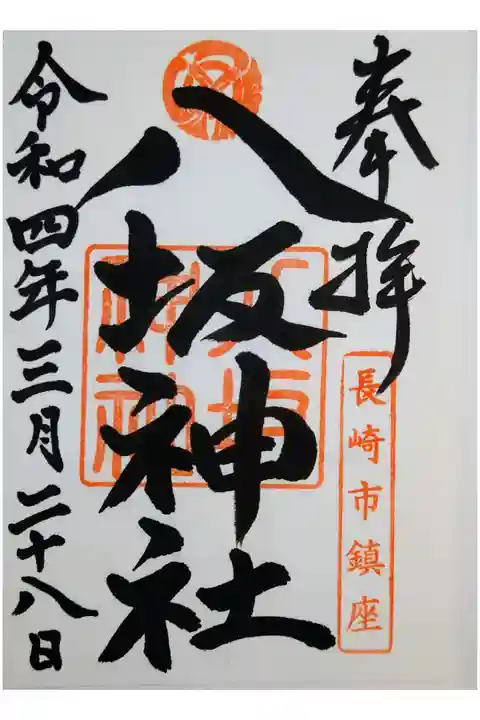 奉拝
長崎市鎮座
八坂神社
八坂
神社
令和四年三月二十八日